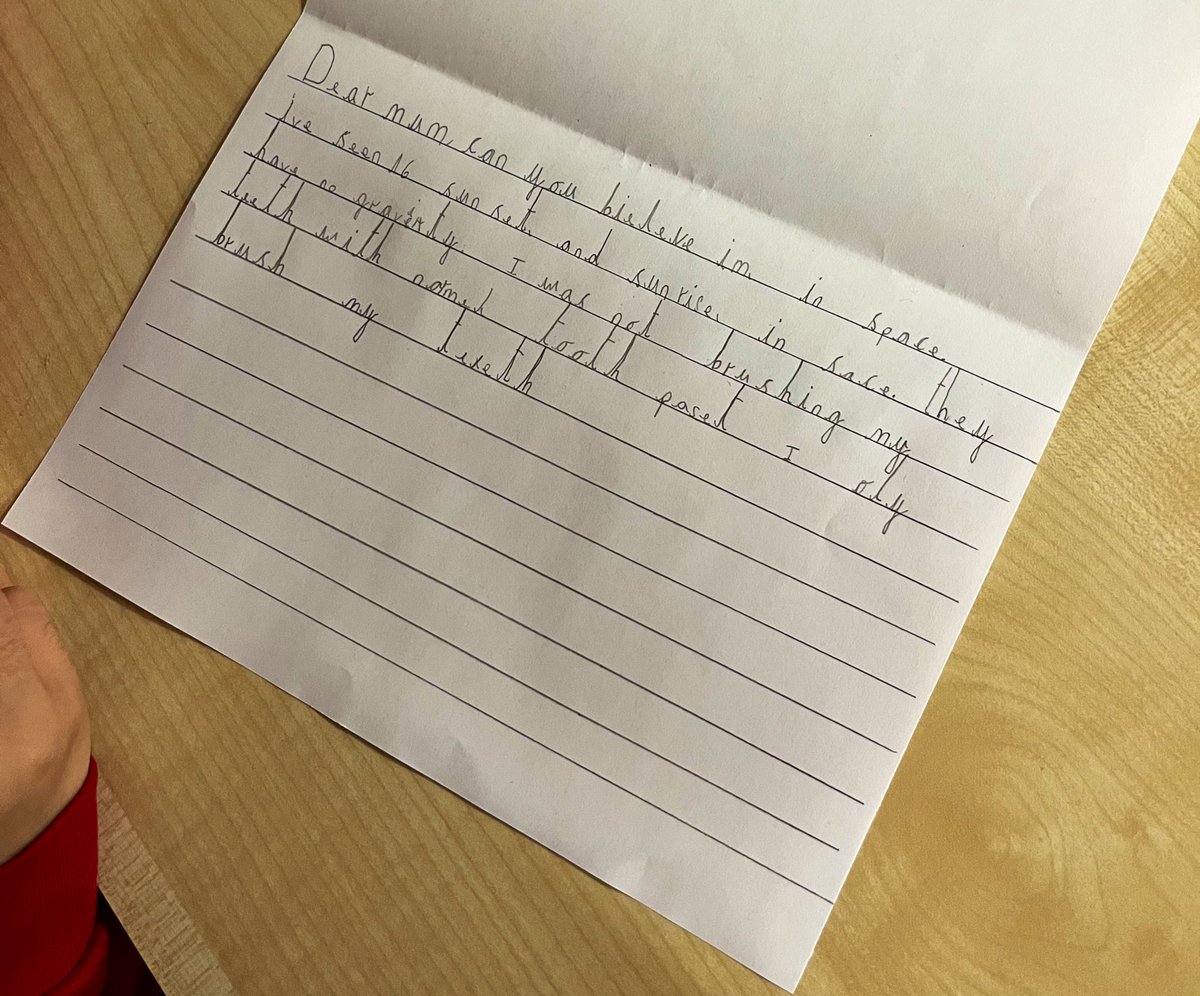 Dear mum, can you bieleve im in space.
i've seen 16 sun set. and sunrise. in sace. they
have no gravity. I was not brushing my
teeth with nomel tooth paset I oly
brush my teeeth